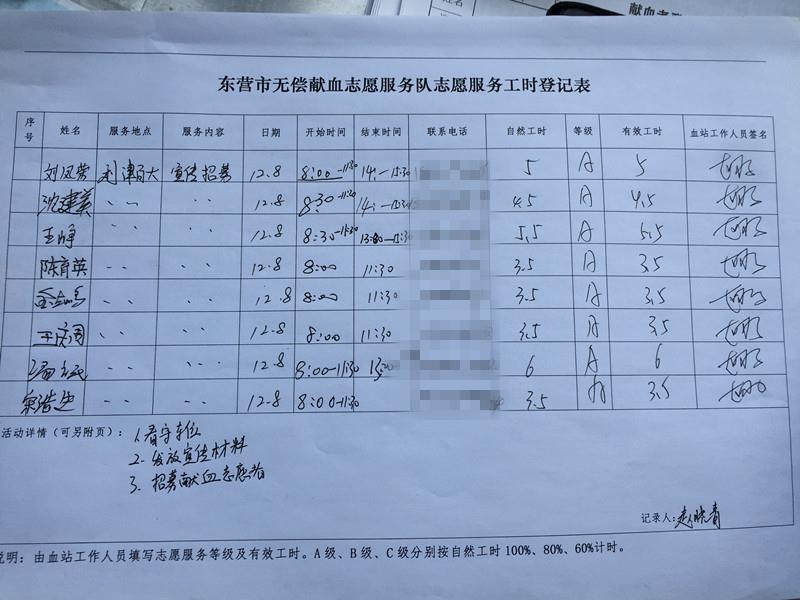 献血志愿
姓名
东营市无偿献血志愿服务队志愿服务工时登记表
序号 姓名 服务地点 服务内容 日期 开始时间 结束时间 联系电话 自然工时 等级 有效工时 血站工作人员签名
刘凤荣 利津百大 宣传招募 12.8 8:00-11:30 14:-15:30 5 A 5
沈建英 〃 〃 12.8 8:30-11:30 14:-15:30 4.5 A 4.5
王峥 〃 〃 12.8 8:30-11:30 13:00-15:30 5.5 A 5.5
陈育英 〃 〃 12.8 8:00 11:30 3.5 A 3.5
〃 〃 12.8 8:00 11:30 3.5 A 3.5
〃 〃 12.8 8:00 11:30 3.5 A 3.5
〃 〃 12.8 8:00-11:30 6 A 6
〃 〃 12.8 8:00-11:30 3.5 A 3.5
活动详情(可另附页): 1.看守车位
2.发放宣传材料
3.招募献血志愿者
记录人:赵晓青
说明:由血站工作人员填写志愿服务等级及有效工时。A级、B级、C级分别按自然工时100%、80%、60%计时。